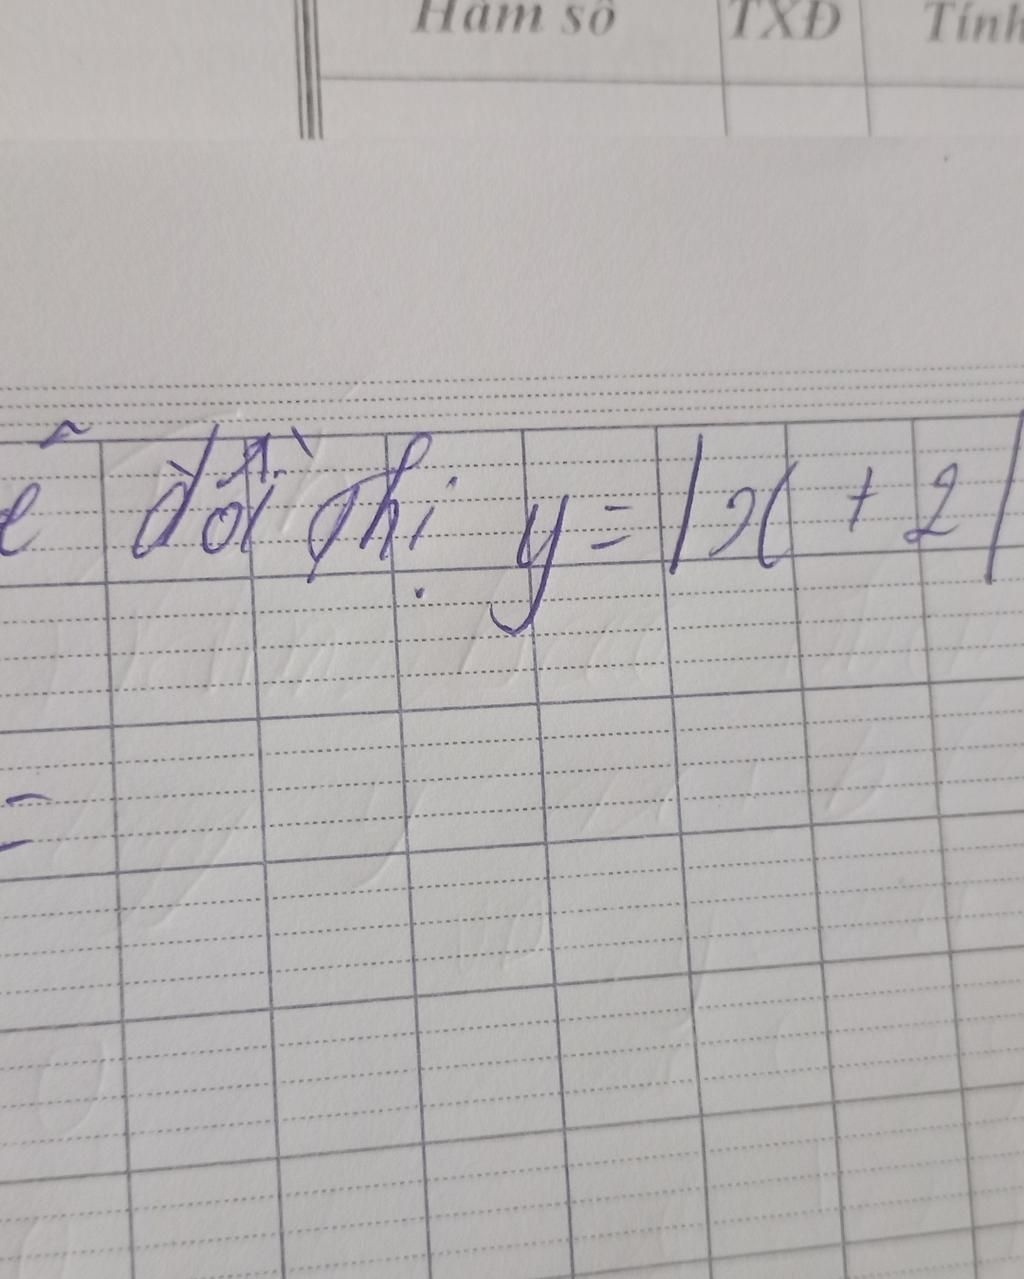 Hàm số TXĐ Tính
ẽ đồ thị y = |x + 2|
=